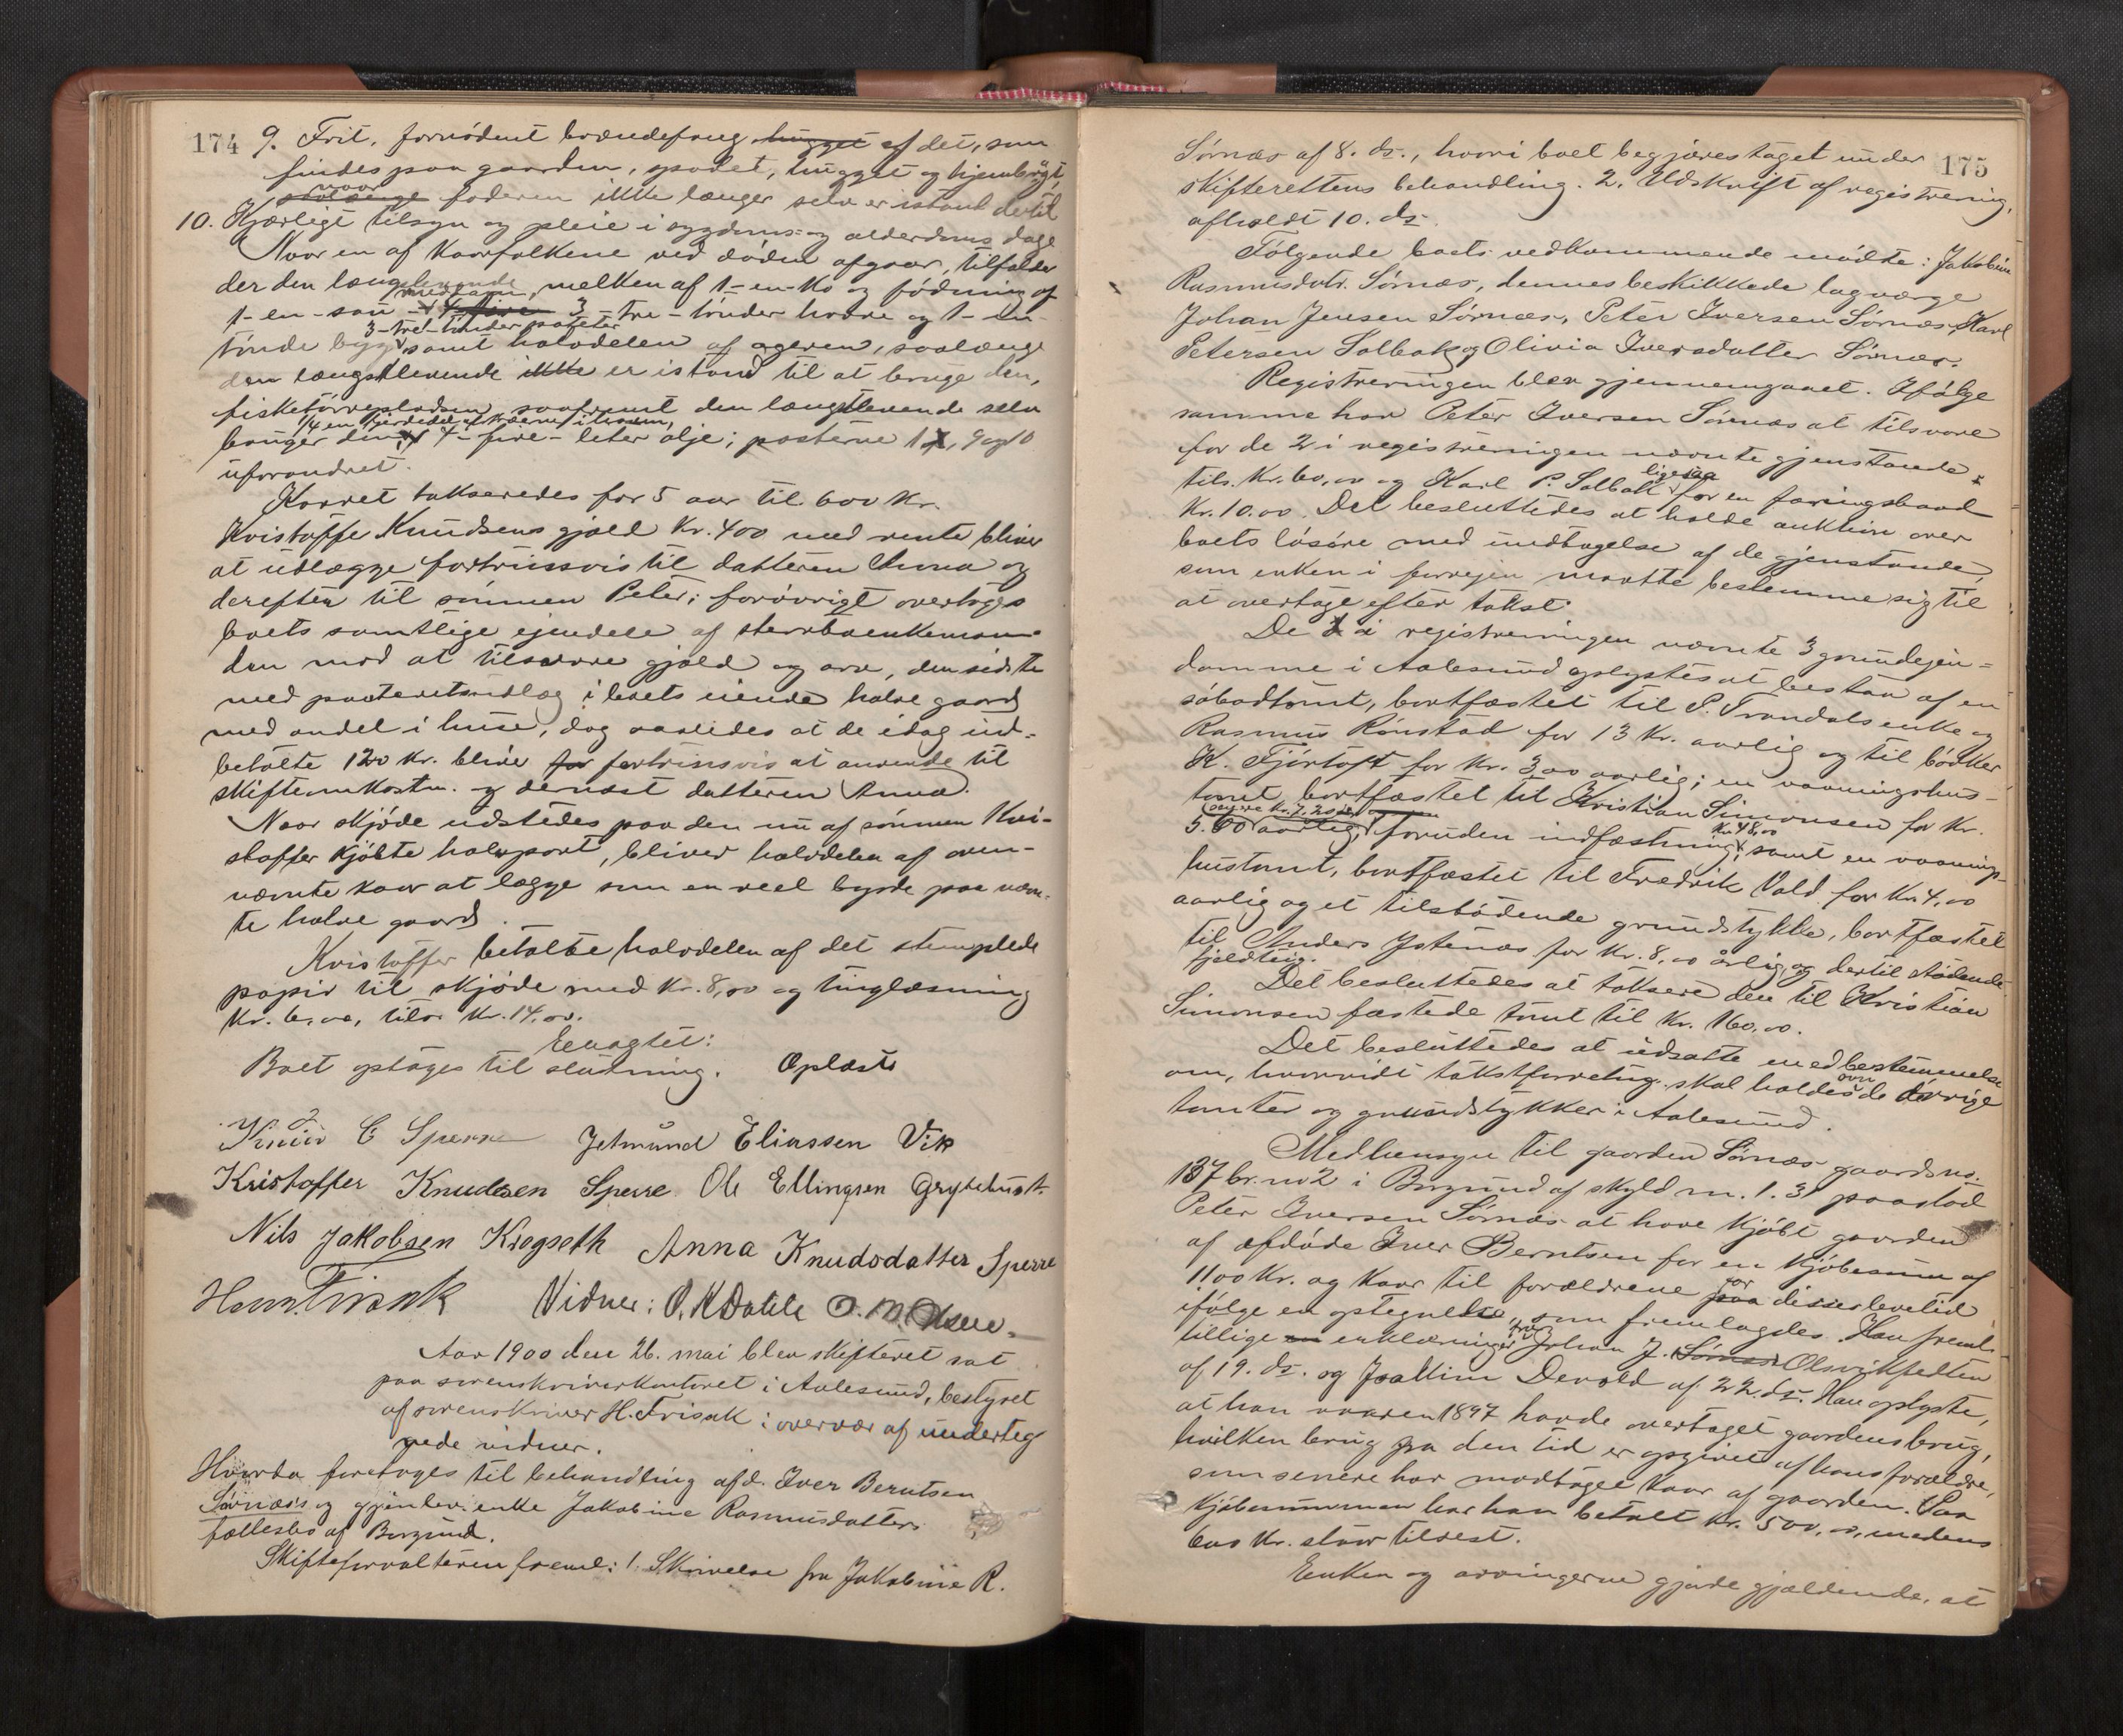 174
9. Frit, fornødent brændefang hugget af det, som
findes paa gaarden, spadet, hugget og hjembragt,
naar
saalænge faderen ikke længer selv er istand dertil
10. Kjærligt tilsyn og pleie i sygdoms- og alderdoms dage
Naar en af kaarfolkene ved døden afgaar, tilfal-
der den længstlevende melken af 1-en-ko og födning af
med lam,
1-en-sau - 4 fire 3 - tre - tønder havre og 1-en-
3-tre-tønder poteter
tønde byg samt halvdelen af ageren, saalænge
den længstlevende ikke er istand til at bruge den,
fisketørrepladsen saafremt den længstlevende selv
1/4 en fjerdedel af trærne i haven,
bruger den, 4-fire-leter olje; posterne 1, 9 og 10
uforandret.
Kaaret takseredes for 5 aar til 600 kr.
Kristoffer Knudsens gjæld kr. 400 med rente bliver
at udlægge fortrinsvis til datteren Anna og
derefter til sønnen Peter; forøvrigt overtoges
boets samtlige eiendele af sterboenkeman-
den mod at tilsvare gjæld og arv, den sidste
med panteretsudlæg i boets eiende halve gaard
med andel i huse, dog saaledes at de idag ud-
betalte 120 kr. bliver for fortrinsvis at anvende til
skifteomkostn. og dernæst datteren Anna.
Naar skjøde udstedes paa den nu af sønnen Kri-
stoffer kjøbte halvpart, bliver halvdelen af oven-
nævnte kaar at lægge som en reel byrde paa næv-
te halve gaard.
Kristoffer betalte halvdelen af det stemplede
papir til skjøde med kr. 8,00 og tinglæsning
kr. 6,00, tils. kr. 14,00.
Eenagtet:
Boet optages til slutning. Oplæst
Knud C Sperre Jetmund Eliassen Vik
Kristoffer Knudsen Sperre Ole Ellingsen Grytehust.
Nils Jakobsen Krogseth Anna Knudsdatter Sperre
H. Frisak Vidner: O. K Dahle O. M. Olsen.
Aar 1900 den 26. mai blev skifteret sat
paa sorenskriverkontoret i Aalesund, bestyret
af sorenskriver H. Frisak i overvær af underteg
nede vidner.
Hvorda foretoges til behandling afd. Iver Berntsen
Sørnæs og gjenlev. enke Jakobine Rasmusdatters
fællesbo af Borgund.
Skifteforvalteren freml: 1. Skrivelse fra Jakobine R.
175
Sørnæs af 8. ds., hvori boet begjæres taget under
skifterettens behandling. 2. Udskrift af registrering,
afholdt 10. ds.
Følgende boets vedkommende mødte: Jakobine
Rasmusdatr. Sørnæs, dennes beskikkede lagværge
Johan Jensen Sørnæs, Peter Iversen Sørnæs, Karl
Petersen Solbak og Olivia Iversdatter Sørnæs.
Registreringen blev gjennemgaaet. Ifølge
samme har Peter Iversen Sørnæs at tilsvare
for de 2 i registreringen nævnte gjenstande
ligesaa
tils. kr. 60,00 og Karl P. Solbak for en færingsbaad
kr. 10.00. Det besluttedes at holde auktion over
boets løsøre med undtagelse af de gjenstande,
som enken i forvejen maatte bestemme sig til
at overtage efter takst.
De i registreringen nævnte 3 grundejen-
domme i Aalesund oplystes at bestaa af en
søbodtomt, bortfæstet til P. Trandals enke og
Rasmus Rønstad for 13 kr. aarlig og til bødker
K. Fjørtoft for kr. 3,00 aarlig; en vaaningshus-
tomt, bortfæstet til Kristian Simonsen for kr.
senere kr. 7,20
5.60 aarlig, foruden indfæstning kr. 48,00, samt en vaanings-
hustomt, bortfæstet til Fredrik Vold for kr. 4,00
aarlig og et tilstødende grundstykke, bortfæstet
til Anders Jstenæs for kr. 8,00 årlig og dertil stødende
fjeldteig.
Det besluttedes at taksere den til Kristian
Simonsen fæstede tomt til kr. 160,00.
Det besluttedes at udsætte med bestemmelse
om, hvorvidt takstforretng. skal holdes over de øvrige
tomter og grundstykker i Aalesund.
Medhensyn til gaarden Sørnæs gaardsno.
137 br. no 2 i Borgund af skyld m. 1.31 paastod
Peter Iversen Sørnæs at have kjøbt gaarden
af afdøde Iver Berntsen for en kjøbesum af
1100 kr. og kaar til forældrene paa for disses levetid
ifølge en optegnelse, som fremlagdes. Han freml.
tillige en erklæringer fra Johan J. Sørnæs Olsvikfedten
af 19. ds. og Joakim Devold af 22. ds. Han oplyste,
at han vaaren 1897 havde overtaget gaardens brug,
hvilken brug fra den tid er opgivet af hans forældre,
som senere har modtaget kaar af gaarden. Paa
kjøbesummen har han betalt kr. 500,00, medens
600 kr. staar tilrest.
Enken og arvingerne gjorde gjældende, at